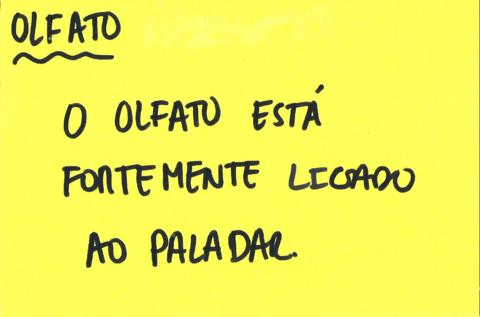 OLFATO
O OLFATO ESTÁ
FORTEMENTE LIGADO
AO PALADAR.